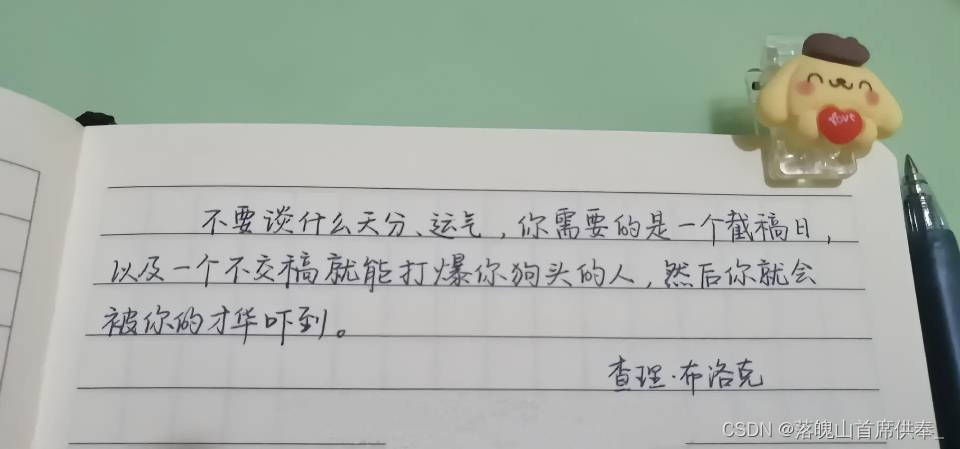 love
不要谈什么天分、运气，你需要的是一个截稿日，
以及一个不交稿就能打爆你狗头的人，然后你就会
被你的才华吓到。
查理·布洛克
CSDN @落魄山首席供奉_